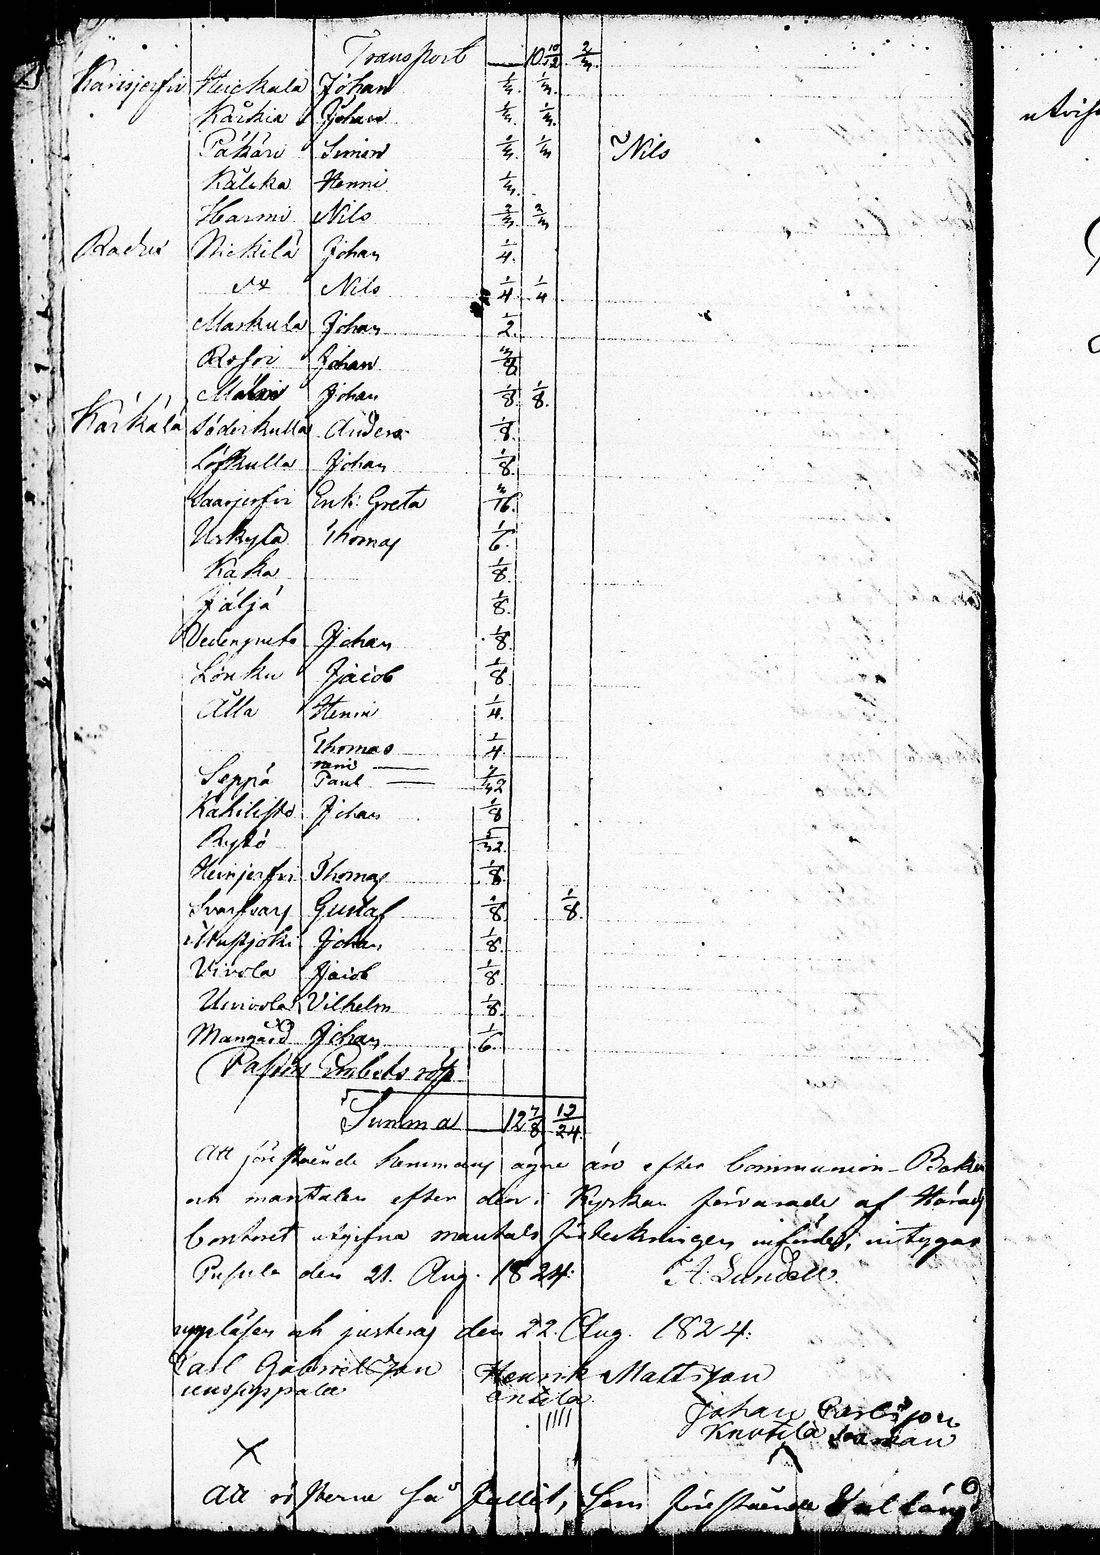 Transport 10 10/12 2/3
Karisjerfvi Heickala Johan 1/3. 1/3.
Kärkiä Johan 1/3. 1/3.
Päkäri Simon 1/3. 1/3 Nils
Kälcka Henric 1/3.
Harmi Nils 2/3 2/3
Radus Nickilä Johan 1/4.
Nils 1/4 1/4
Markula Johan 1/2.
Johan 3/8
Johan 1/8 1/8.
Kärkälä Söderkulla Anders 1/8.
Löfkulla Johan 1/8.
Saarjerfvi Enk: Greta 3/16.
Uskylä Thomas 1/6.
Kaka 1/8.
Jäljä 1/8.
Johan 1/8.
Lönku Jacob 1/8
Alla Henric 1/4.
Thomas 1/4
Seppä Paul
Kahilisto Johan 1/8
Rykö 5/32.
Heinjerfvi Thomas 1/8
Gustaf 1/8 1/8.
Johan 1/8.
Vivola Jacob 1/8.
Vilhelm 1/8.
Mangård Johan 1/6.
Pastors Embets röst
Summa 12 7/8 13/24
Att förestående hemmans ägare äro efter Communion-Boken
och mantalen efter den i Kyrkan förvarade af Härads
Contoret utgifna mantals förteckningen införde, intygar
Pusula den 21. Aug. 1824. A. Lundell.
uppläsen och justerad den 22. Aug. 1824.
Carl Gabrielsson Henrik Mattsson
Anttila
Johan Carlsson
Knutila
X
Att rösterne så fallit, som förestående